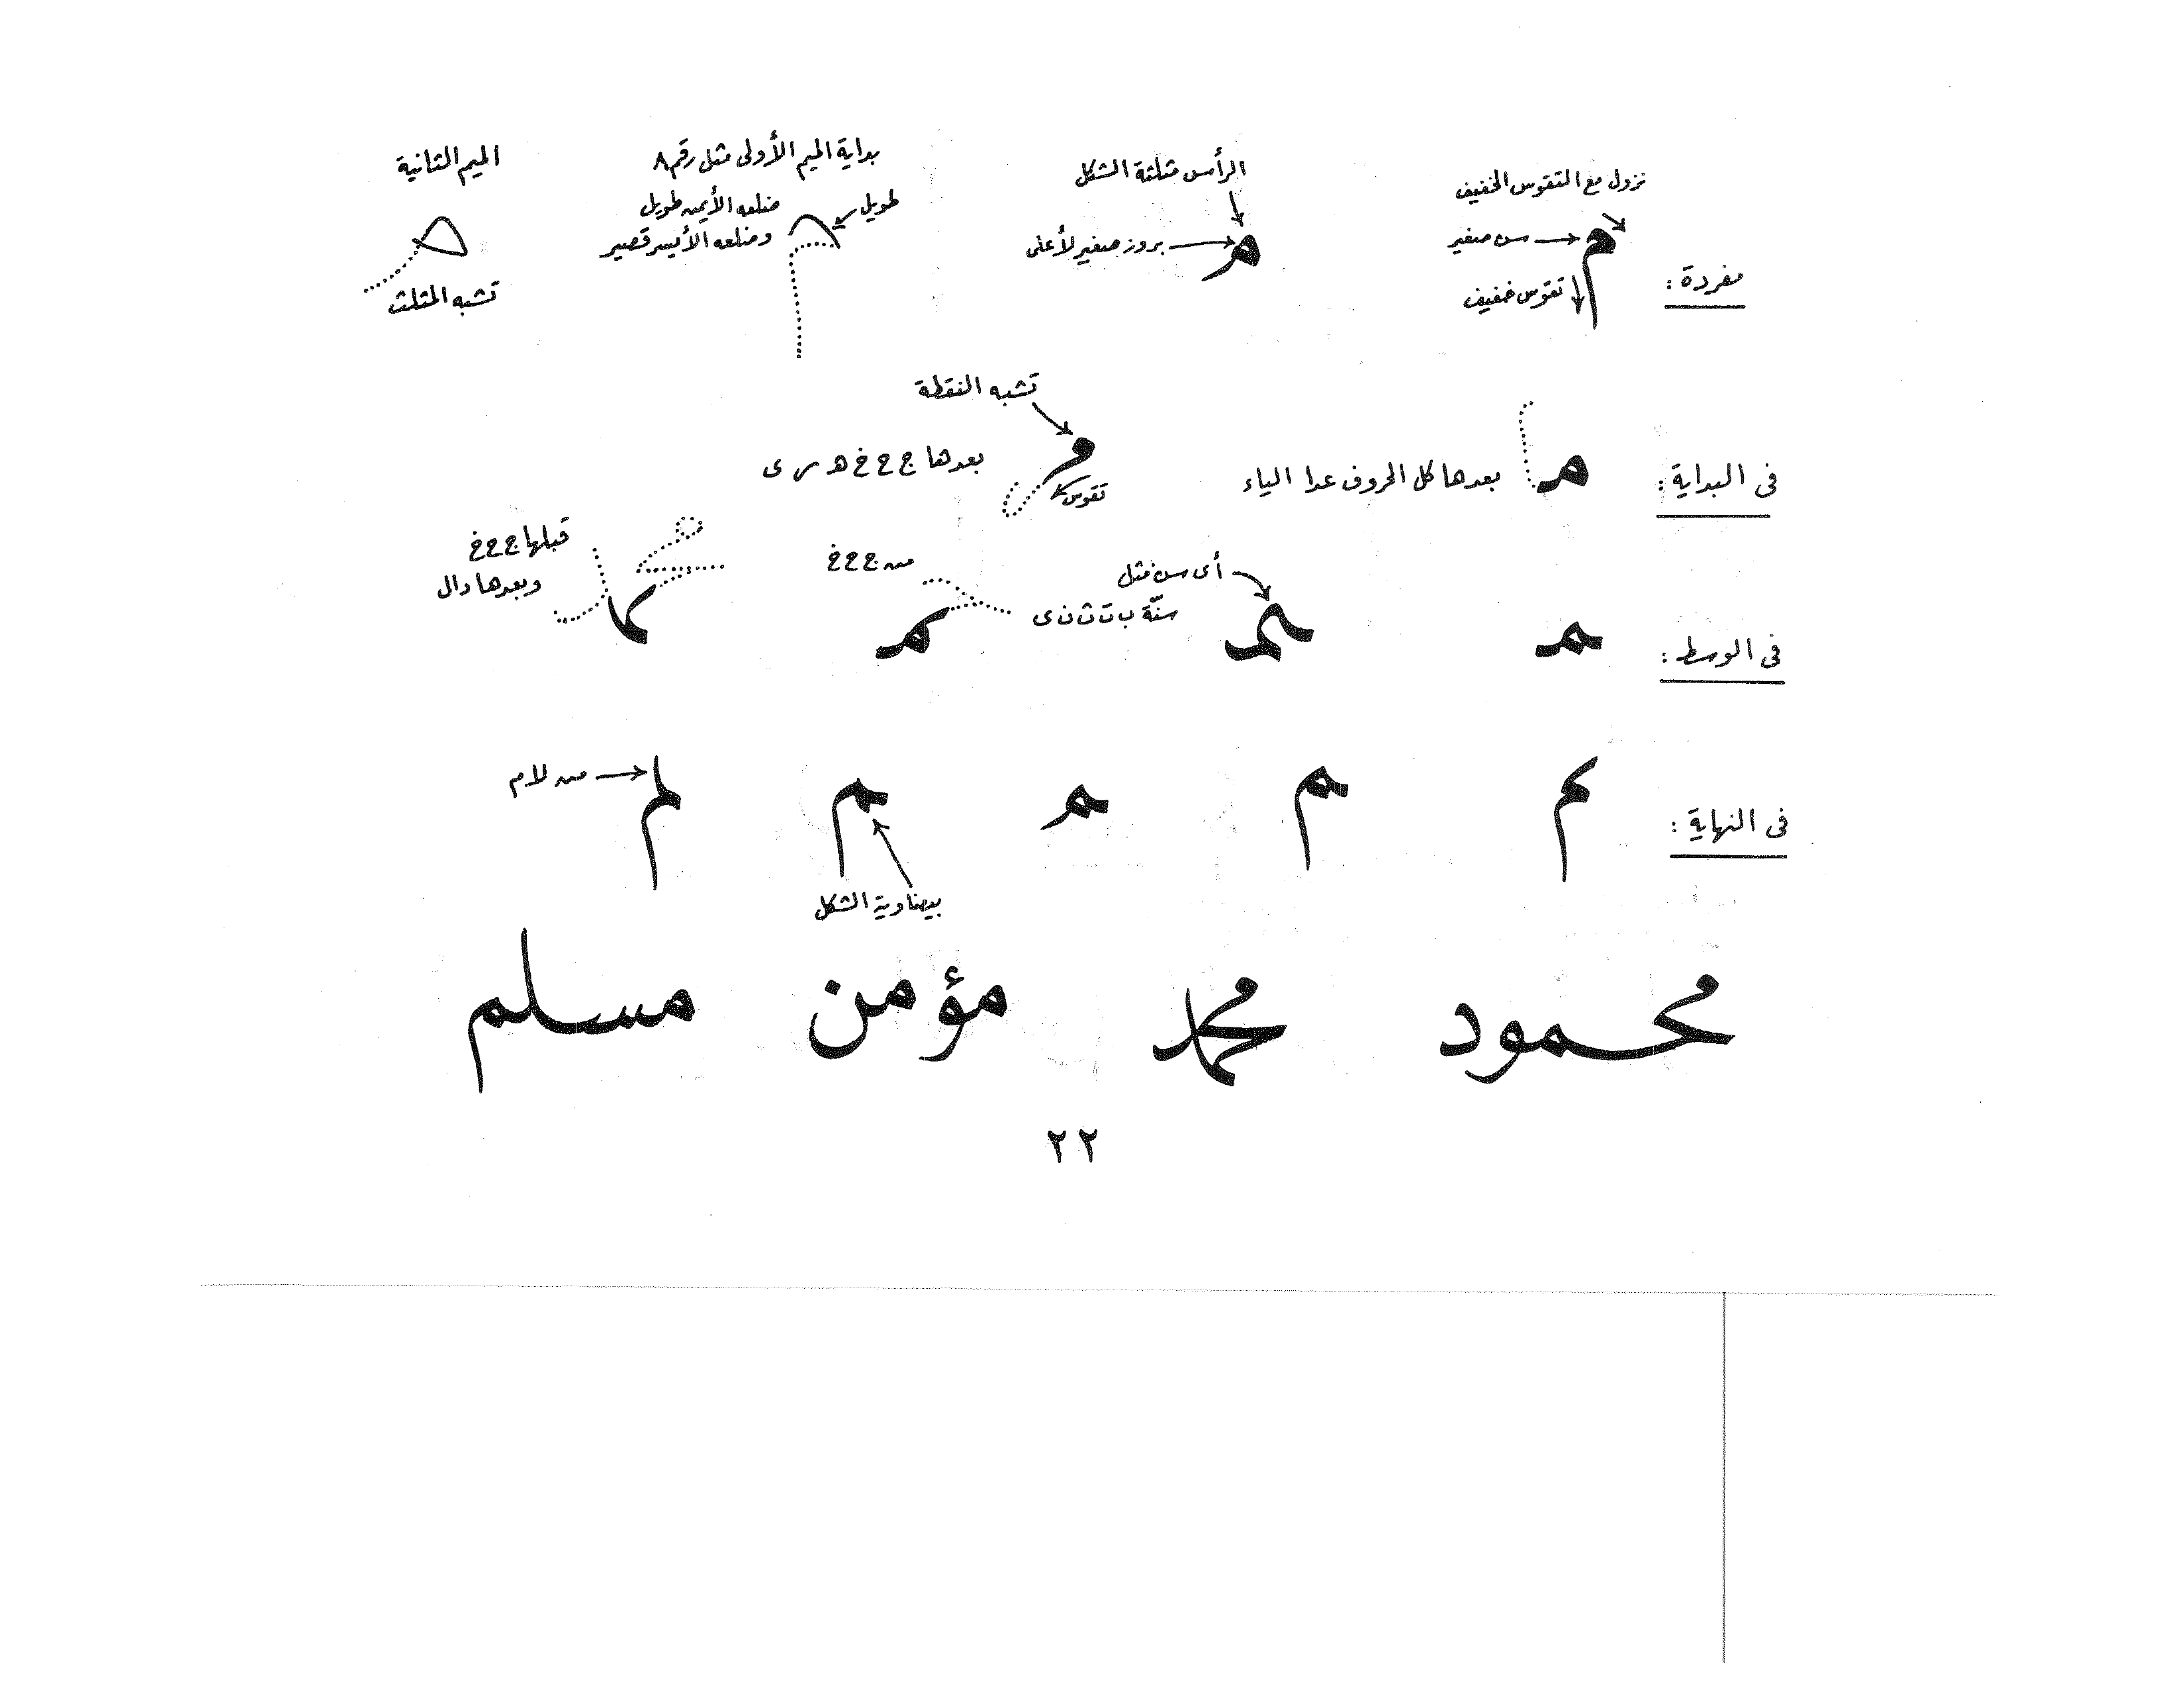 نزول مع التقوس الخفيف
سن صغير
تقوس خفيف
مفردة :
م
الرأس مثلثة الشكل
بروز صغير لأعلى
م
بداية الميم الأولى مثل رقم ٨
طويل
ضلعه الأيمن طويل
وضلعه الأيسر قصير
الميم الثانية
تشبه المثلث
فى البداية :
مـ
بعدها كل الحروف عدا الياء
تشبه النقطة
مـ
تقوس
بعدها ج ح خ هـ ر ى
فى الوسط :
ـمـ
أى سن مثل
سنّة ب ت ث ن ى
ـمـ
من ج ح خ
ـمـ
قبلها ج ح خ
وبعدها دال
ـمـ
فى النهاية :
ـم ـم ـم ـم لم
من لام
بيضاوية الشكل
محمود محمد مؤمن مسلم
٢٢